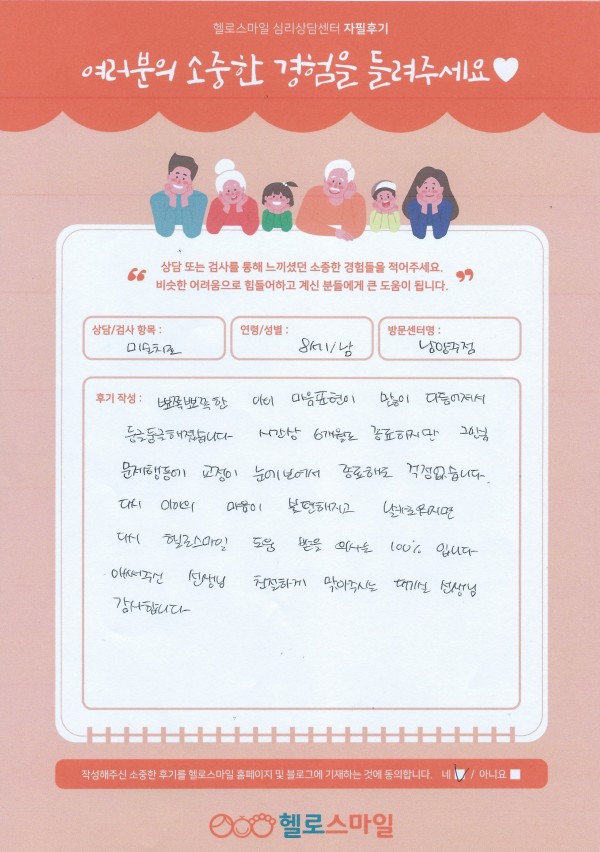 헬로스마일 심리상담센터 자필후기
여러분의 소중한 경험을 들려주세요♥
상담 또는 검사를 통해 느끼셨던 소중한 경험들을 적어주세요.
비슷한 어려움으로 힘들어하고 계신 분들에게 큰 도움이 됩니다.
상담/검사 항목 :
미술치료
연령/성별 :
8세/남
방문센터명 :
남양주점
후기 작성 : 뾰족뾰족한 마음표현이 많이 다듬어져서
둥글둥글해졌습니다 시간상 6개월로 종료하지만 그만큼
문제행동에 교정이 눈에보여서 종료해도 걱정없습니다.
다시 아이의 마음이 불편해지고 날카로워지면
다시 헬로스마일 도움 받을 의사는 100% 입니다
애써주신 선생님 친절하게 맞아주시는 데스크 선생님
감사합니다
작성해주신 소중한 후기를 헬로스마일 홈페이지 및 블로그에 기재하는 것에 동의합니다. 네 / 아니요
헬로스마일